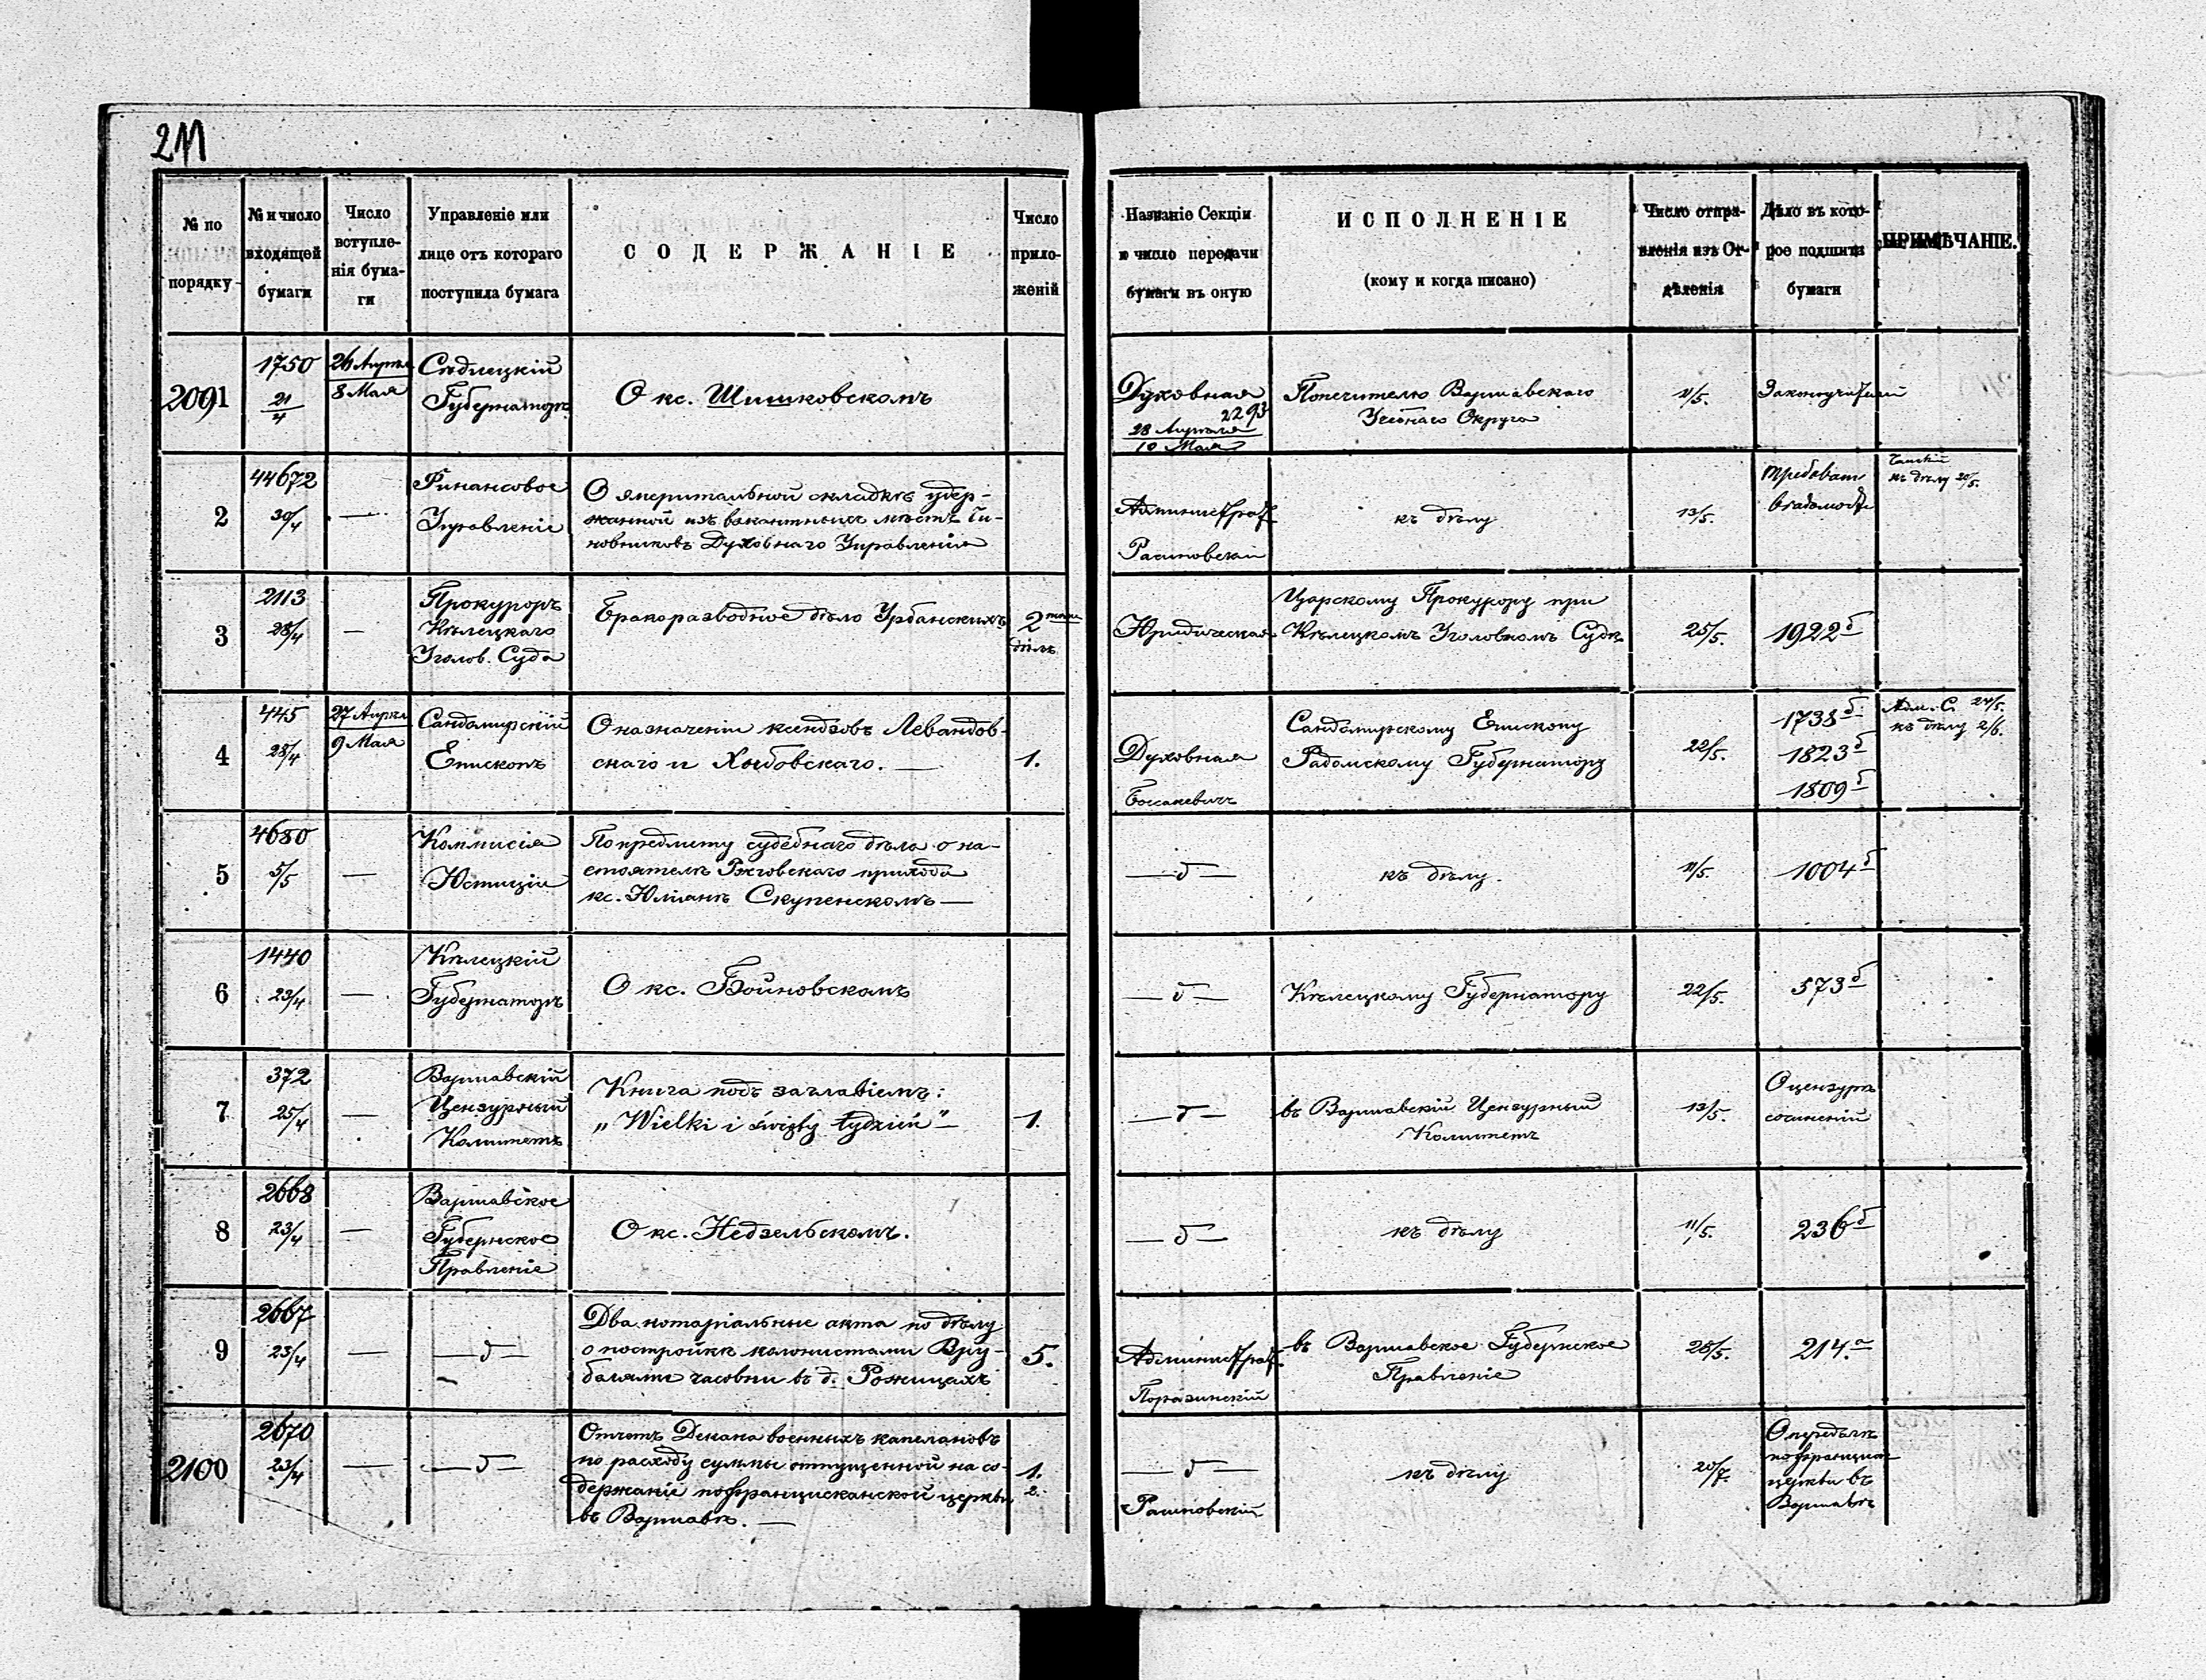 211
№ по порядку
№ и число входящей бумаги
Число вступленія бумаги
Управленіе или лице отъ котораго поступила бумага
СОДЕРЖАНІЕ
Число приложеній
Названіе Секціи и число передачи бумаги въ оную
ИСПОЛНЕНІЕ
(кому и когда писано)
Число отправленія изъ Отдѣленія
Дѣло въ которое подшита бумаги
ПРИМѢЧАНІЕ.
2091
1750
21/4
26 Апрѣл
8 Мая
Сѣдлецкій
Губернаторъ
О кс. Шишковскомъ
Духовная
2293
28 Апрѣля
10 Мая
Попечителю Варшавскаго
Учебнаго Округа
11/5.
Законоучителей
2
44672
30/4
—
Финансовое
Управленіе
О эмеритальной складкѣ удер-
жанной изъ вакантныхъ мѣстъ Чи-
новниковъ Духовнаго Управленія
Администрат.
къ дѣлу
13/5.
Требоват.
Вѣдомости
къ дѣлу 20/5.
3
2113
28/4
—
Прокуроръ
Кѣлецкаго
Уголов. Суда
Бракоразводное дѣло Урбанскихъ
2
дѣлъ
Юридическая
Царскому Прокурору при
Кѣлецкомъ Уголовномъ Судѣ
25/5.
1922 б
4
445
28/4
27 Апрѣл
9 Мая
Сандомирскій
Епископъ
О назначеніи ксендзовъ Левандов-
скаго и Хыбовскаго. —
1.
Духовная
Сандомирскому Епископу
Радомскому Губернатору
22/5.
1738 б
1823 б
1809 б
Адм. С. 24/5.
къ дѣлу 2/6.
5
4680
5/5
—
Коммисія
Юстиціи
По предмету судебнаго дѣла о на-
стоятелѣ Рживовскаго прихода
кс. Юліанѣ Скупенскомъ —
— д —
къ дѣлу.
11/5.
1004 б
6
1440
23/4
—
Кѣлецкій
Губернаторъ
О кс. Бойновскомъ
— д —
Кѣлецкому Губернатору
22/5.
573 б
7
372
25/4
—
Варшавскій
Цензурный
Комитетъ
Книга подъ заглавіемъ:
„Wielki i święty tydzień" —
1.
— д —
въ Варшавскій Цензурный
Комитетъ
13/5.
О цензурѣ
сочиненій
8
2668
23/4
—
Варшавское
Губернское
Правленіе
О кс. Недзельскомъ.
— д —
къ дѣлу
11/5.
236 б
9
2667
23/4
—
— д —
Два нотаріальные акта по дѣлу
о постройкѣ колонистами Вру-
блями часовни въ д. Рожицахъ
5.
Администрат.
Поразинскій
въ Варшавское Губернское
Правленіе
28/5.
214. а
2100
2670
23/4
—
— д —
Отчетъ Декана военныхъ капелановъ
по расходу суммы отпущенной на со-
держаніе пофранцисканской церкви
въ Варшавѣ. —
1.
2.
— д —
къ дѣлу
20/7.
О передѣлкѣ
пофранцискан
церкви въ
Варшавѣ